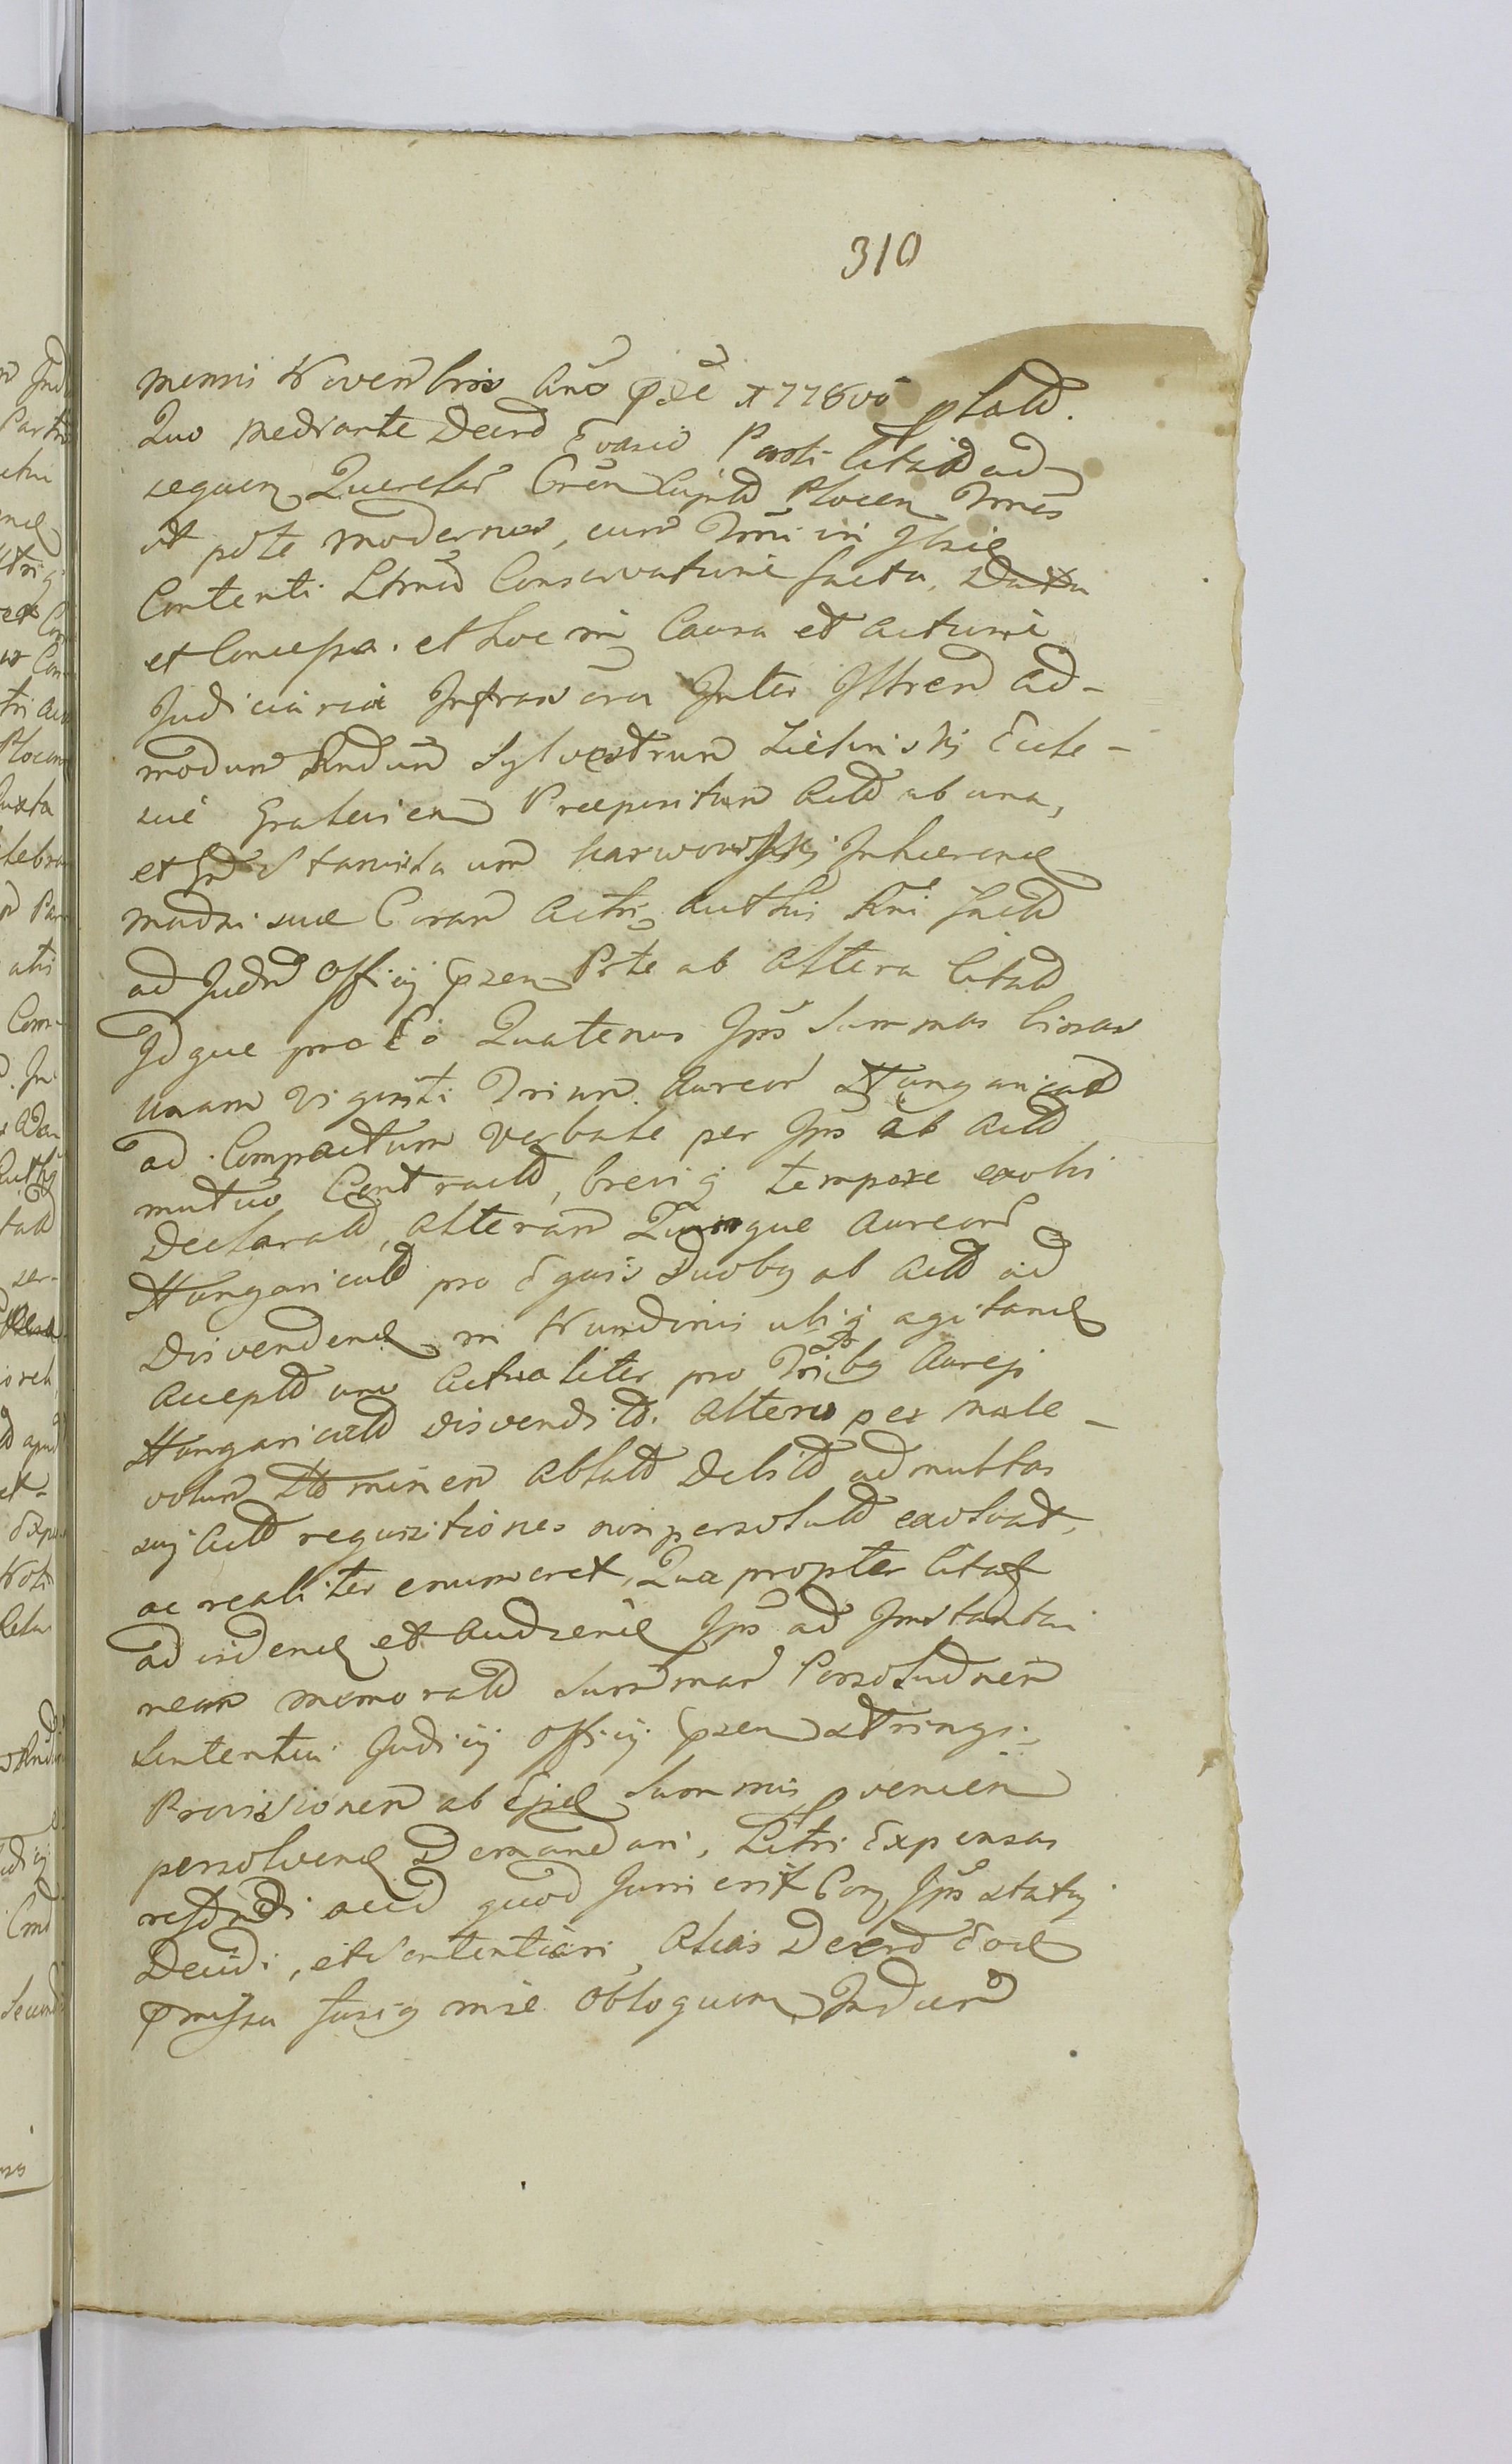 310
mensis Novembris Año 1776to
Quo mediante Decrō Evasio Parti Citatā ad
sequen Querelar̄ Cren Capit̄ Plocen Trm̄is
ut pote modernus, cum Trm̄i in
Contenti Conservatione facta, Data
et Concessa. et hoc in Causa et actione
Judiciaria Infrascra Inter Illrem Ad-
modum Rndūm Sylvestrum Zielinskij Eccle-
sie Gralevien Præpositum Act̄ ab una,
et Gd Stanislaum Karwowskij Inhærend
modri sue Coram Actis authēis facta
ad Judm̄ Officij psen Pte ab Altera Citat̄
Idque pro Eo Quatenus Ips̄ Summas binas
unam viginti Trium Aureor̄ Hungarical̄
ad Compactum verbale per Ips̄ ab Act̄
mutuo Contract̄, brevig tempore exolvi
Declarat̄, Alteram Quinque Aureor̄
Hungarical̄ pro Equis Duobg ab Act̄ ad
Disvendend in Nundinis ubig agitand
Accept̄ uno Actualiter pro Tribg Aureis
Hungarical̄ disvendit̄. Altero per male-
volum Hominem Ablat̄ Debit̄ ad multas
suj Act̄ requisitiones non persolut̄ exolvat,
ac realiter enumeret, Qua propter Citat
ad videnď et Audienď Ips̄ ad Instanta-
neam memorat̄ Summar̄ Persolu̅nem
Sententia Judicij Officij psen Astringi,
Provisionem ab Ejsď Summis pvenien
persolvenď Demandari, Litis Expensas
refundi aliud quod Juris erit Cong Ips̄ statuj
Decidi, et Sententiari, Alias Decerō Eod
pmissa fusig Obloquen Indum̄